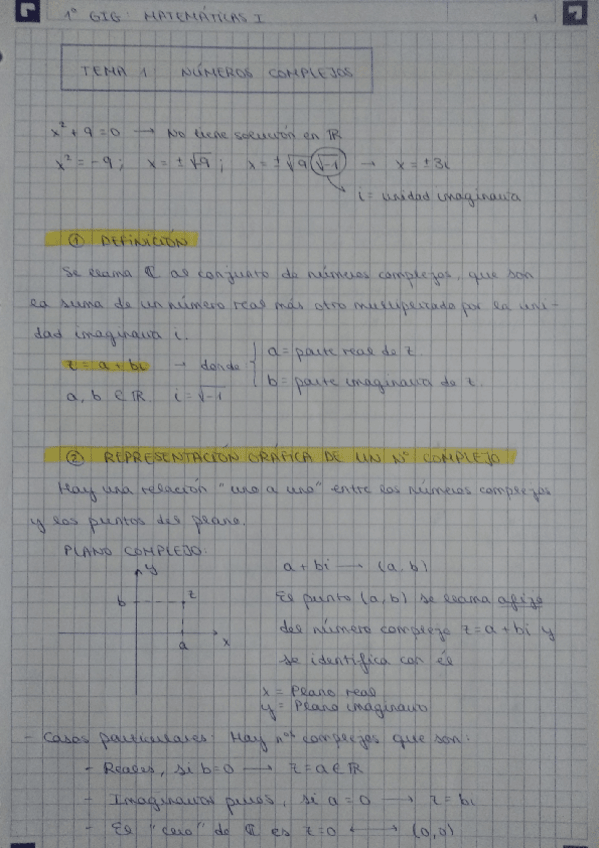 1º GIG: MATEMÁTICAS I 1
TEMA 1 NÚMEROS COMPLEJOS
x² + 9 = 0 → No tiene solución en ℝ
x² = -9; x = ±√-9; x = ±√9 √-1 → x = ±3i
i = unidad imaginaria
① DEFINICIÓN
Se llama ℂ al conjunto de números complejos, que son
la suma de un número real más otro multiplicado por la uni-
dad imaginaria i.
z = a + bi → donde { a = parte real de z
b = parte imaginaria de z.
a, b ∈ ℝ. i = √-1
② REPRESENTACIÓN GRÁFICA DE UN Nº COMPLEJO
Hay una relación "uno a uno" entre los números complejos
y los puntos del plano.
PLANO COMPLEJO:
y
b z
a x
a + bi → (a, b)
El punto (a, b) se llama afijo
del número complejo z = a + bi y
se identifica con él
x = Plano real
y = Plano imaginario
- Casos particulares: Hay nºs complejos que son:
- Reales, si b = 0 → z = a ∈ ℝ
- Imaginarios puros, si a = 0 → z = bi
- El "cero" de ℂ es z = 0 ↔ (0,0)